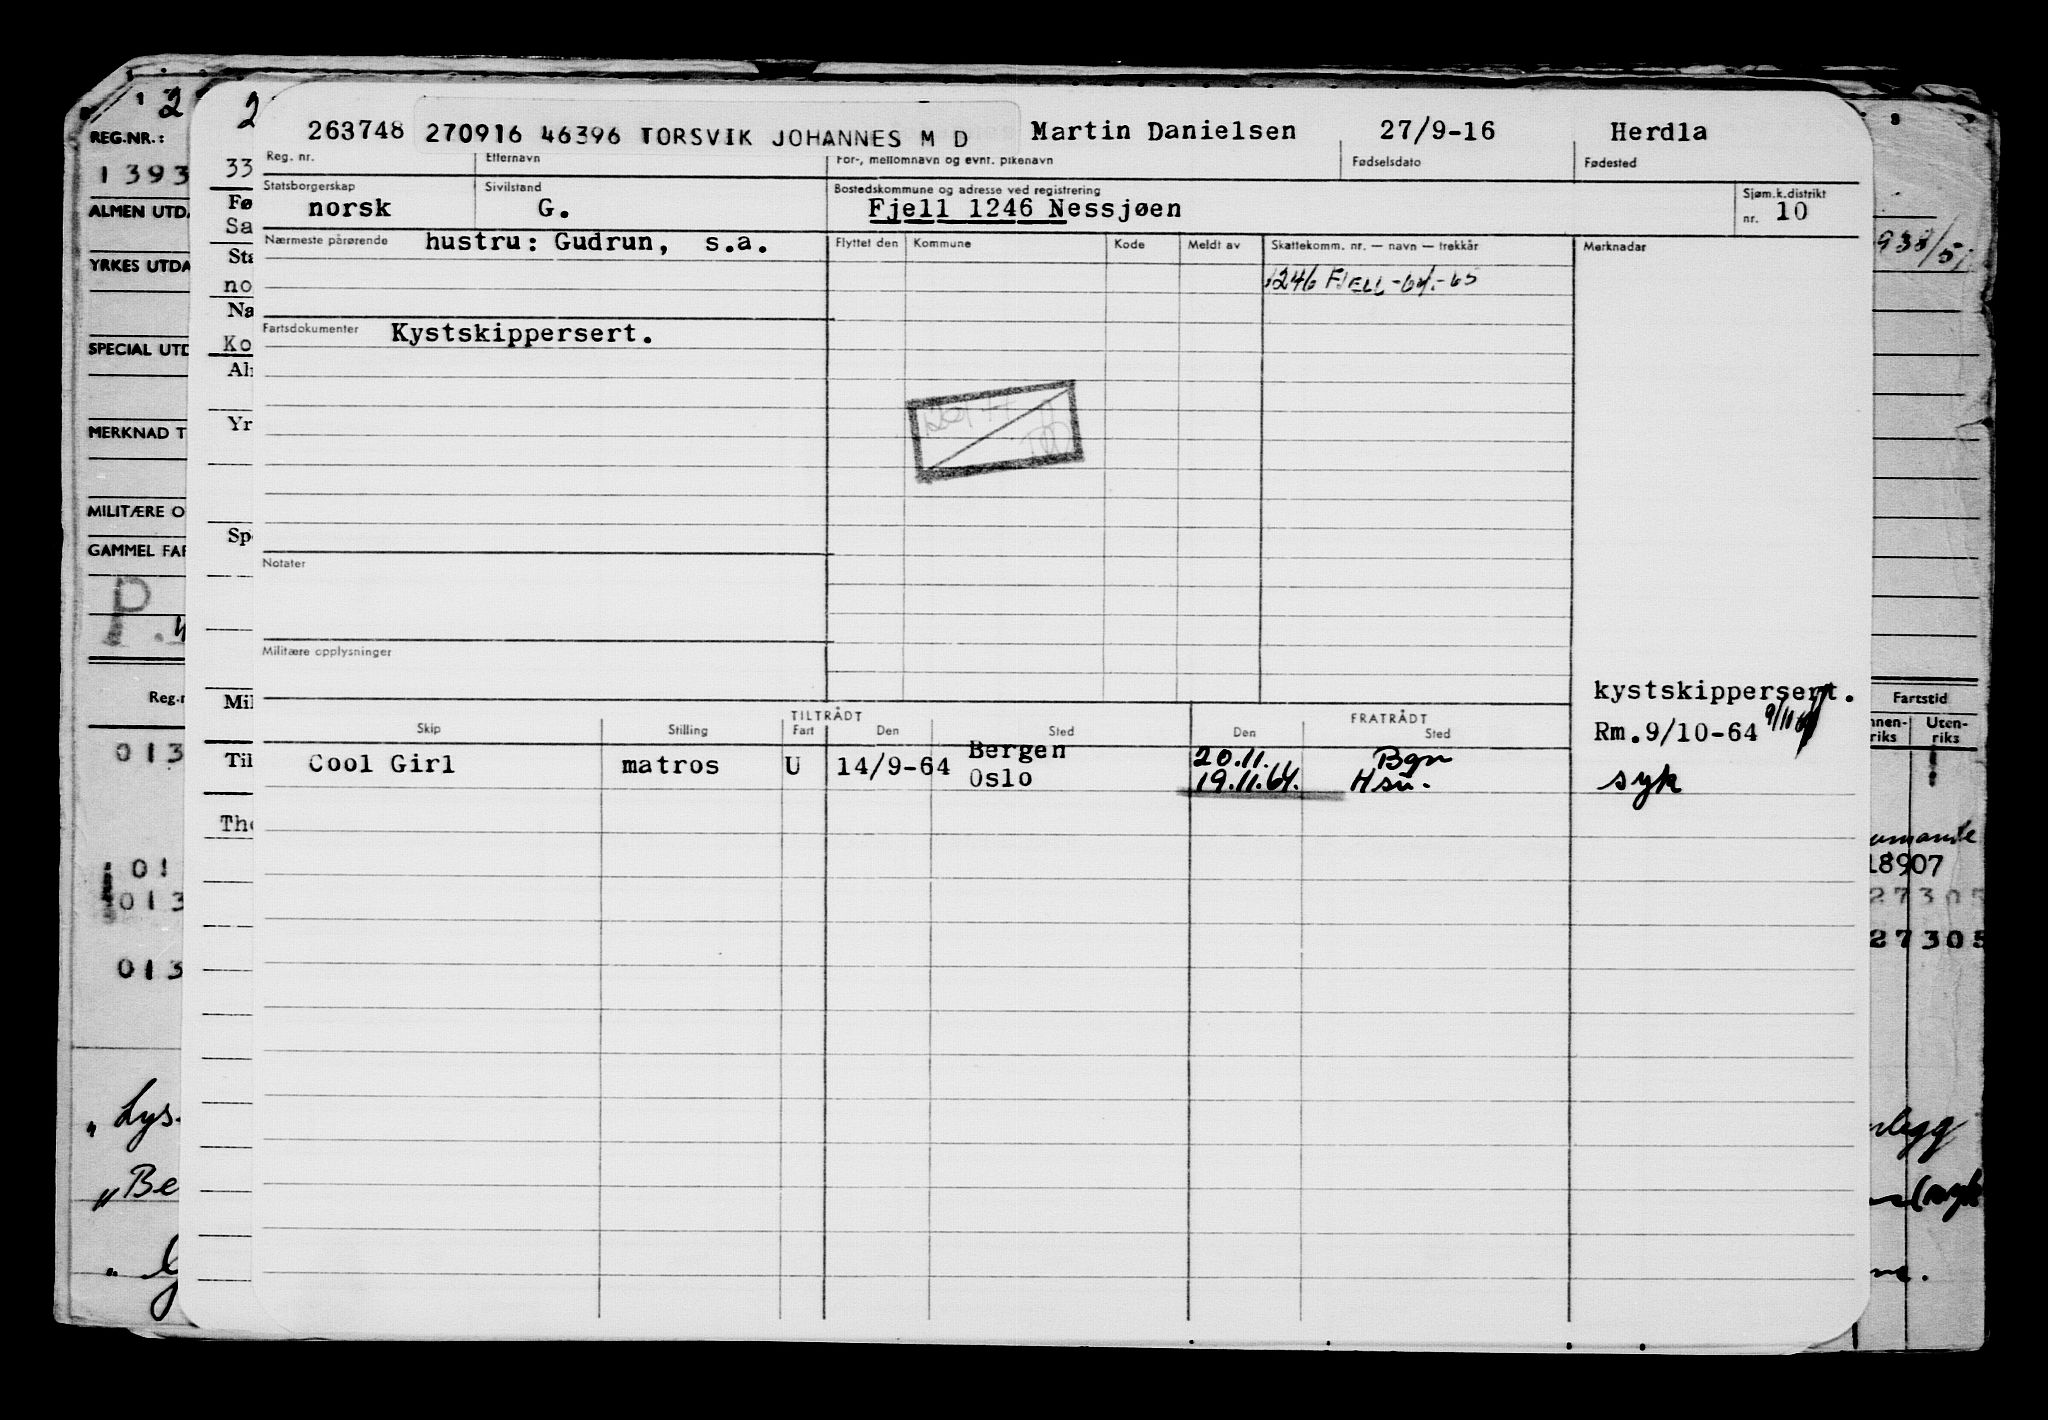 2 2
REG.NR.: 263748 270916 46396 TORSVIK JOHANNES M D Martin Danielsen 27/9-16 Herdla
1393 33 Reg. nr. Etternavn For-, mellomnavn og evnt. pikenavn Fødselsdato Fødested
Statsborgerskap Sivilstand Bostedskommune og adresse ved registrering Sjøm.k.distrikt
ALMEN UTD Fø norsk G. Fjell 1246 Nessjøen nr. 10
Sa
Nærmeste pårørende hustru: Gudrun, s.a. Flyttet den Kommune Kode Meldt av Skattekomm. nr. — navn — trekkår Merknadar
YRKES UTDA Sta
no 1246 FJELL -64.-65
Na
SPECIAL UTD Ko Fartsdokumenter Kystskippersert.
Al
MERKNAD T Yr
MILITÆRE O
Sp
GAMMEL FAR Notater
P.
Militære opplysninger
Reg.n Mil kystskippersert. Fartstid
TILTRÅDT FRATRÅDT Rm.9/10-64 nnen- Uten-
Skip Stilling Fart Den Sted Den Sted riks riks
013 Til Cool Girl matros U 14/9-64 Bergen 20.11. Bgn
Oslo 19.11.64. Hsu. syk
Tho
01 18907
013 27305
013 27305
" Lys. legg
" Be